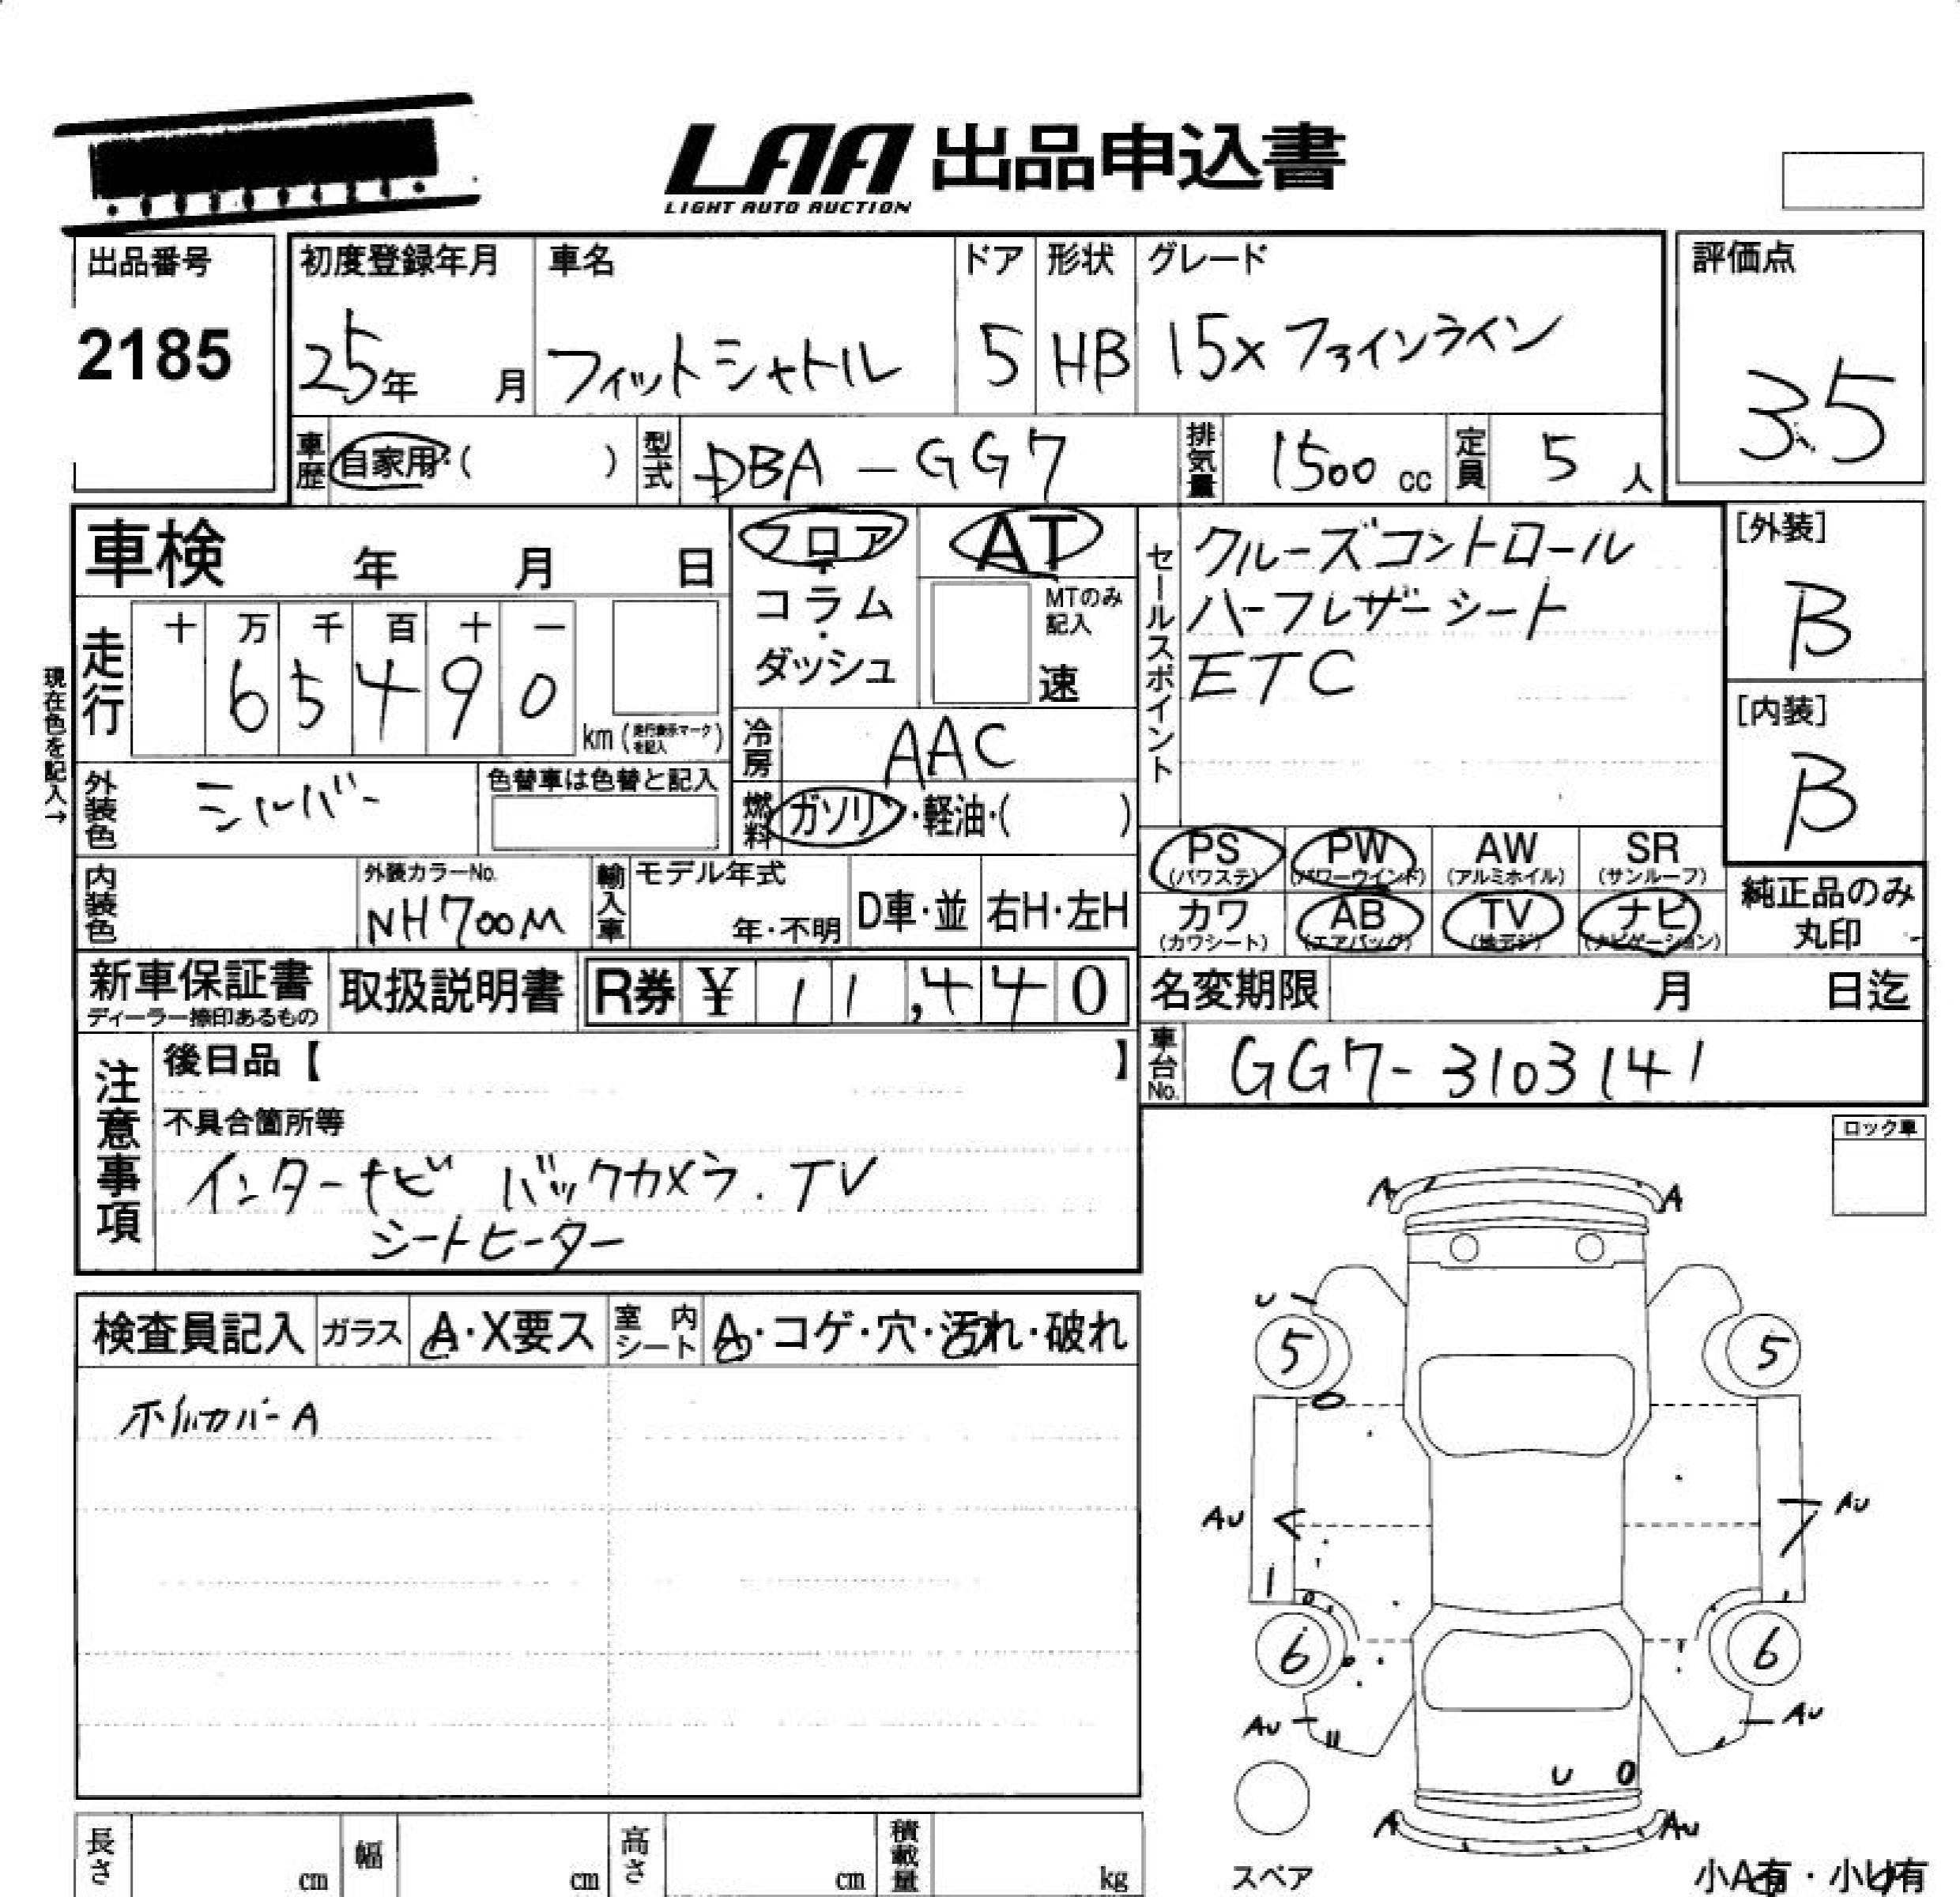 LAA 出品申込書
LIGHT AUTO AUCTION
出品番号
2185
初度登録年月
25年 月
車名
フィットシャトル
ドア
5
形状
HB
グレード
15X ファインライン
評価点
3.5
車歴 自家用・( )
型式 DBA-GG7
排気量 1500 cc
定員 5 人
車検 年 月 日
フロア・コラム・ダッシュ
AT
MTのみ記入
速
セールスポイント
クルーズコントロール
ハーフレザーシート
ETC
[外装]
B
[内装]
B
現在色を記入→
走行
十 万 千 百 十 一
6 5 4 9 0
km (走行表示マークを記入)
冷房 AAC
外装色 シルバー
色替車は色替と記入
燃料 ガソリン・軽油・( )
PS (パワステ)
PW (パワーウインド)
AW (アルミホイル)
SR (サンルーフ)
内装色
外装カラーNo.
NH700M
輸入車
モデル年式
年・不明
D車・並
右H・左H
カワ (カワシート)
AB (エアバッグ)
TV (地デジ)
ナビ (ナビゲーション)
純正品のみ
丸印
新車保証書
ディーラー捺印あるもの
取扱説明書
R券 ¥ 11,440
名変期限 月 日迄
車台No. GG7-3103141
注意事項
後日品【 】
不具合箇所等
インターナビ バックカメラ.TV
シートヒーター
ロック車
検査員記入
ガラス A・X要ス
室内シート A・コゲ・穴・汚れ・破れ
ホイルカバーA
A A
U
5 5
AU AU
6 6
AU AU
U
A AU
スペア
小A有・小U有
長さ cm
幅 cm
高さ cm
積載量 kg